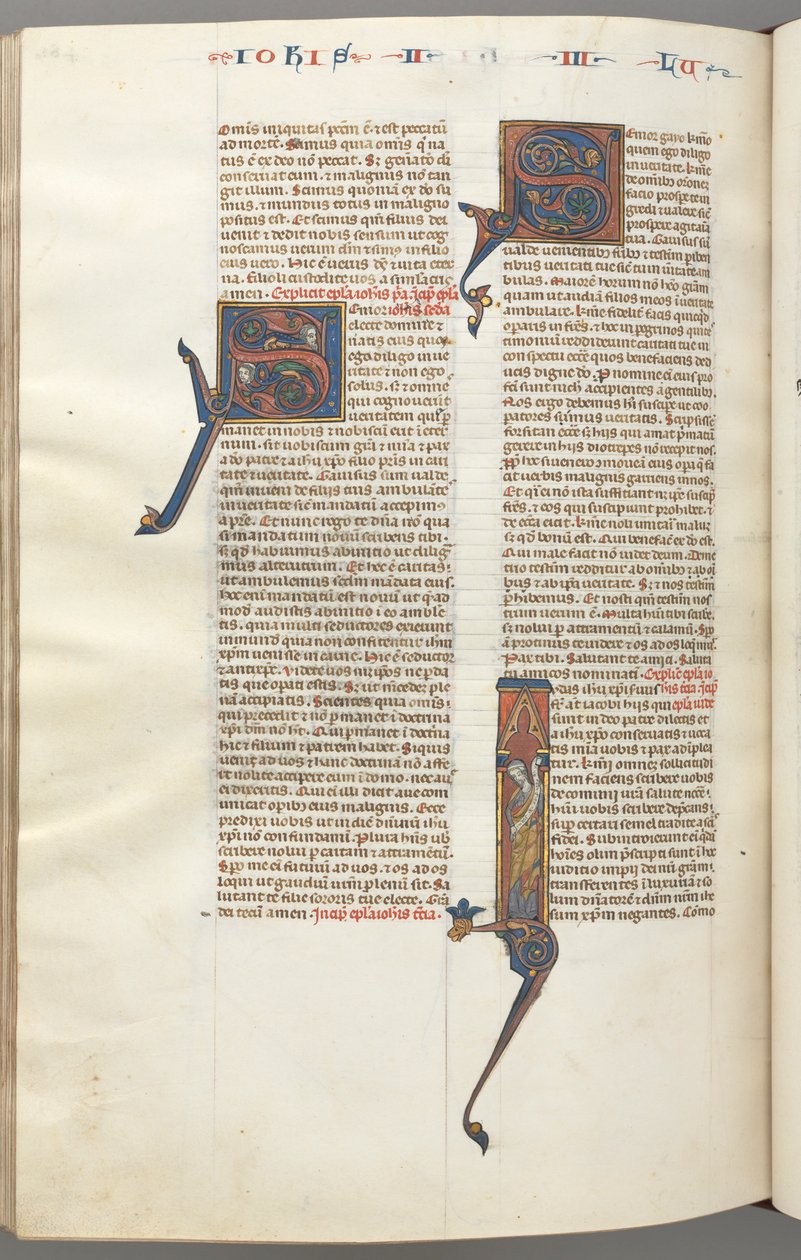 IOHIS II III IU
Omis iniquitas pctm ē. ⁊ est peccatū
ad mortē. Scimus quia omis q̇ na
tus ē ex deo nō peccat. Sȝ gen̄atō di
conseruat eum. ⁊ malignus nō tan
git illum. Scimus quoniā ex do su
mus. ⁊ mundus totus in maligno
positus est. Et scimus qm̄ filius dei
uenit ⁊ dedit nobis sensum ut cog
noscamus uerum dm̄ ⁊ simꝰ in filio
eius uero. Hic ē uerus ds̄ ⁊ uita eter
na. filioli custodite uos a simlacris
amen. Explicit epla iohis p̄a. īcip̄ epla
Senior iohis sc̄da
electe domine ⁊
natis eius quos
ego diligo in ue
ritate ⁊ non ego
solus. sȝ ⁊ omnes
qui cognouerūt
ueritatem que p̄
manet in nobis ⁊ nobiscū erit ī eter
num. sit uobiscum gr̄a ⁊ mīa ⁊ pax
a do patre ⁊ a ihū xp̄o filio pr̄is in cari
tate ⁊ ueritate. Gauisus sum ualde
qm̄ inueni de filiis tuis ambulātes
in ueritate sic̄ mandatū accepimꝰ
a p̄re. Et nunc rogo te dn̄a nō qua
si mandatum nouū scribens tibi.
sȝ qd̄ habuimus ab initio ut diligam̄
mus alterutrum. Et hec ē caritas.
ut ambulemus scdm̄ mādata eius.
hoc eni mandatū est nouū ut q̄ad
mod̄ audistis ab initio ī eo ambletis
tis. quia multi seductores exierunt
in mūnd quia non confitentur ihm̄
xp̄m uenisse in carne. Hic ē seductor
⁊ antixp̄c. Videte uos mip̄os ne p̄da
tis que opati estis. Sȝ ut m̄cedeȝ ple
nā accipiatis. Scientes quia omis.
qui precedit ⁊ nō p̄manet ī doctrīa
xp̄i dm̄ non ht̄. Qui p̄manet ī doct̄a
hic ⁊ filium ⁊ patrem habet. Siquis
uenit ad uos ⁊ hanc doctrinā nō affe
rt nolite accipere eum ī domo. nec aue
ei dixeritis. Qui eī illi dicit aue com
unicat opibꝰ eius malignis. Ecce
predixi uobis ut in die dn̄i n̄ri ihū
xp̄i nō confundamī. Plura hn̄s ub̄
scribere nolui p̄ cartam ⁊ attramētū.
Sp̄o me eī futurū ad uos. ⁊ os ad os
loqui ut gaudiū ur̄m plenū sit. Sa
lutant te filie sororis tue electe. Gr̄a
dei tecū amen. Incip̄ epl̄a iohis t̄cia.
Senior gayo kīmo
quem ego diligo
in ueritate. kīme
de omibꝰ orōnes
facio prospere in
gredi ⁊ ualere sic̄
prospere agit aīa
tua. Gauisus sū
ualde uenientibꝰ frībꝰ ⁊ testim̄ p̄iben
tibus ueritati tue sic̄ tu in ūitate am
bulas. Maiorē horum nō heo grām
quam ut audiā filios meos ī ueritate
ambulare. kīme fidelit̄ facis quicqd̄
opatis in fr̄es. ⁊ hoc in peregrinos qui tes
timoniū reddiderunt caritati tue in
conspectu eccē quos benefaciens ded
ucis digne dō. P̄ nomine eī eius pro
fc̄i sunt nich accipientes a gentilibꝰ.
Nos ergo debemus hꝰi suscipe ut coo
patores sim̄us ueritatis. Scrip̄siss̄e
forsitan eccē sȝ hijs qui amat p̄matū
gerere in hijs diotrepes nō recepit nos.
Pp̄ hoc si uenero moneā eius opa q̄ fa
cit uerbis malignis garriens in nos.
Et q̄si nō ista sufficiant nꝫ ipse suscip̄
fr̄es. ⁊ eos qui suscipiunt prohibet. ⁊
de eccā eicit. kīme noli imitari maluȝ
sȝ qd̄ bonū est. Qui benefac̄ ex dō est.
Qui male facit nō uidet deum. Deme
trio testim̄ redditur ab omibꝰ ⁊ ab ip̄a
ueritate. Sȝ ⁊ nos testim̄
p̄hibemus. Et nosti qm̄ testim̄ nos
trum uerum ē. Multa hūi tibi scribe.
sȝ nolui p̄ attramentū ⁊ calamū. Sp̄o
aū protinus te uidere ⁊ os ad os loqīmur.
Pax tibi. Salutant te amici. Saluta
tu amicos nominatī. Explic̄ epl̄a io
Iudas ihū xp̄i seruus his t̄cia īcip̄
fr̄ aū iacobi hijs qui epl̄a iude
sunt in deo patre dilectis et
a ihū xp̄o conseruatis ⁊ uoca
tis mīa uobis ⁊ pax adīplea
tur. kīmi omneȝ sollicitudi
nem faciens scribere uobis
de comuni ur̄a salute nec̄e.
hūi uobis scribere dep̄cans.
sup̄ certari semel tradite a sc̄is
fidei. Subintroierunt eī qd̄ā
hoīes olim p̄scripti sunt ī hoc
iuditio impii dei nr̄i grām.
transferentes ī luxuriā ⁊ so
lum dn̄atorē ⁊ dn̄m nr̄m ihe
sum xp̄m negantes. Cōmo